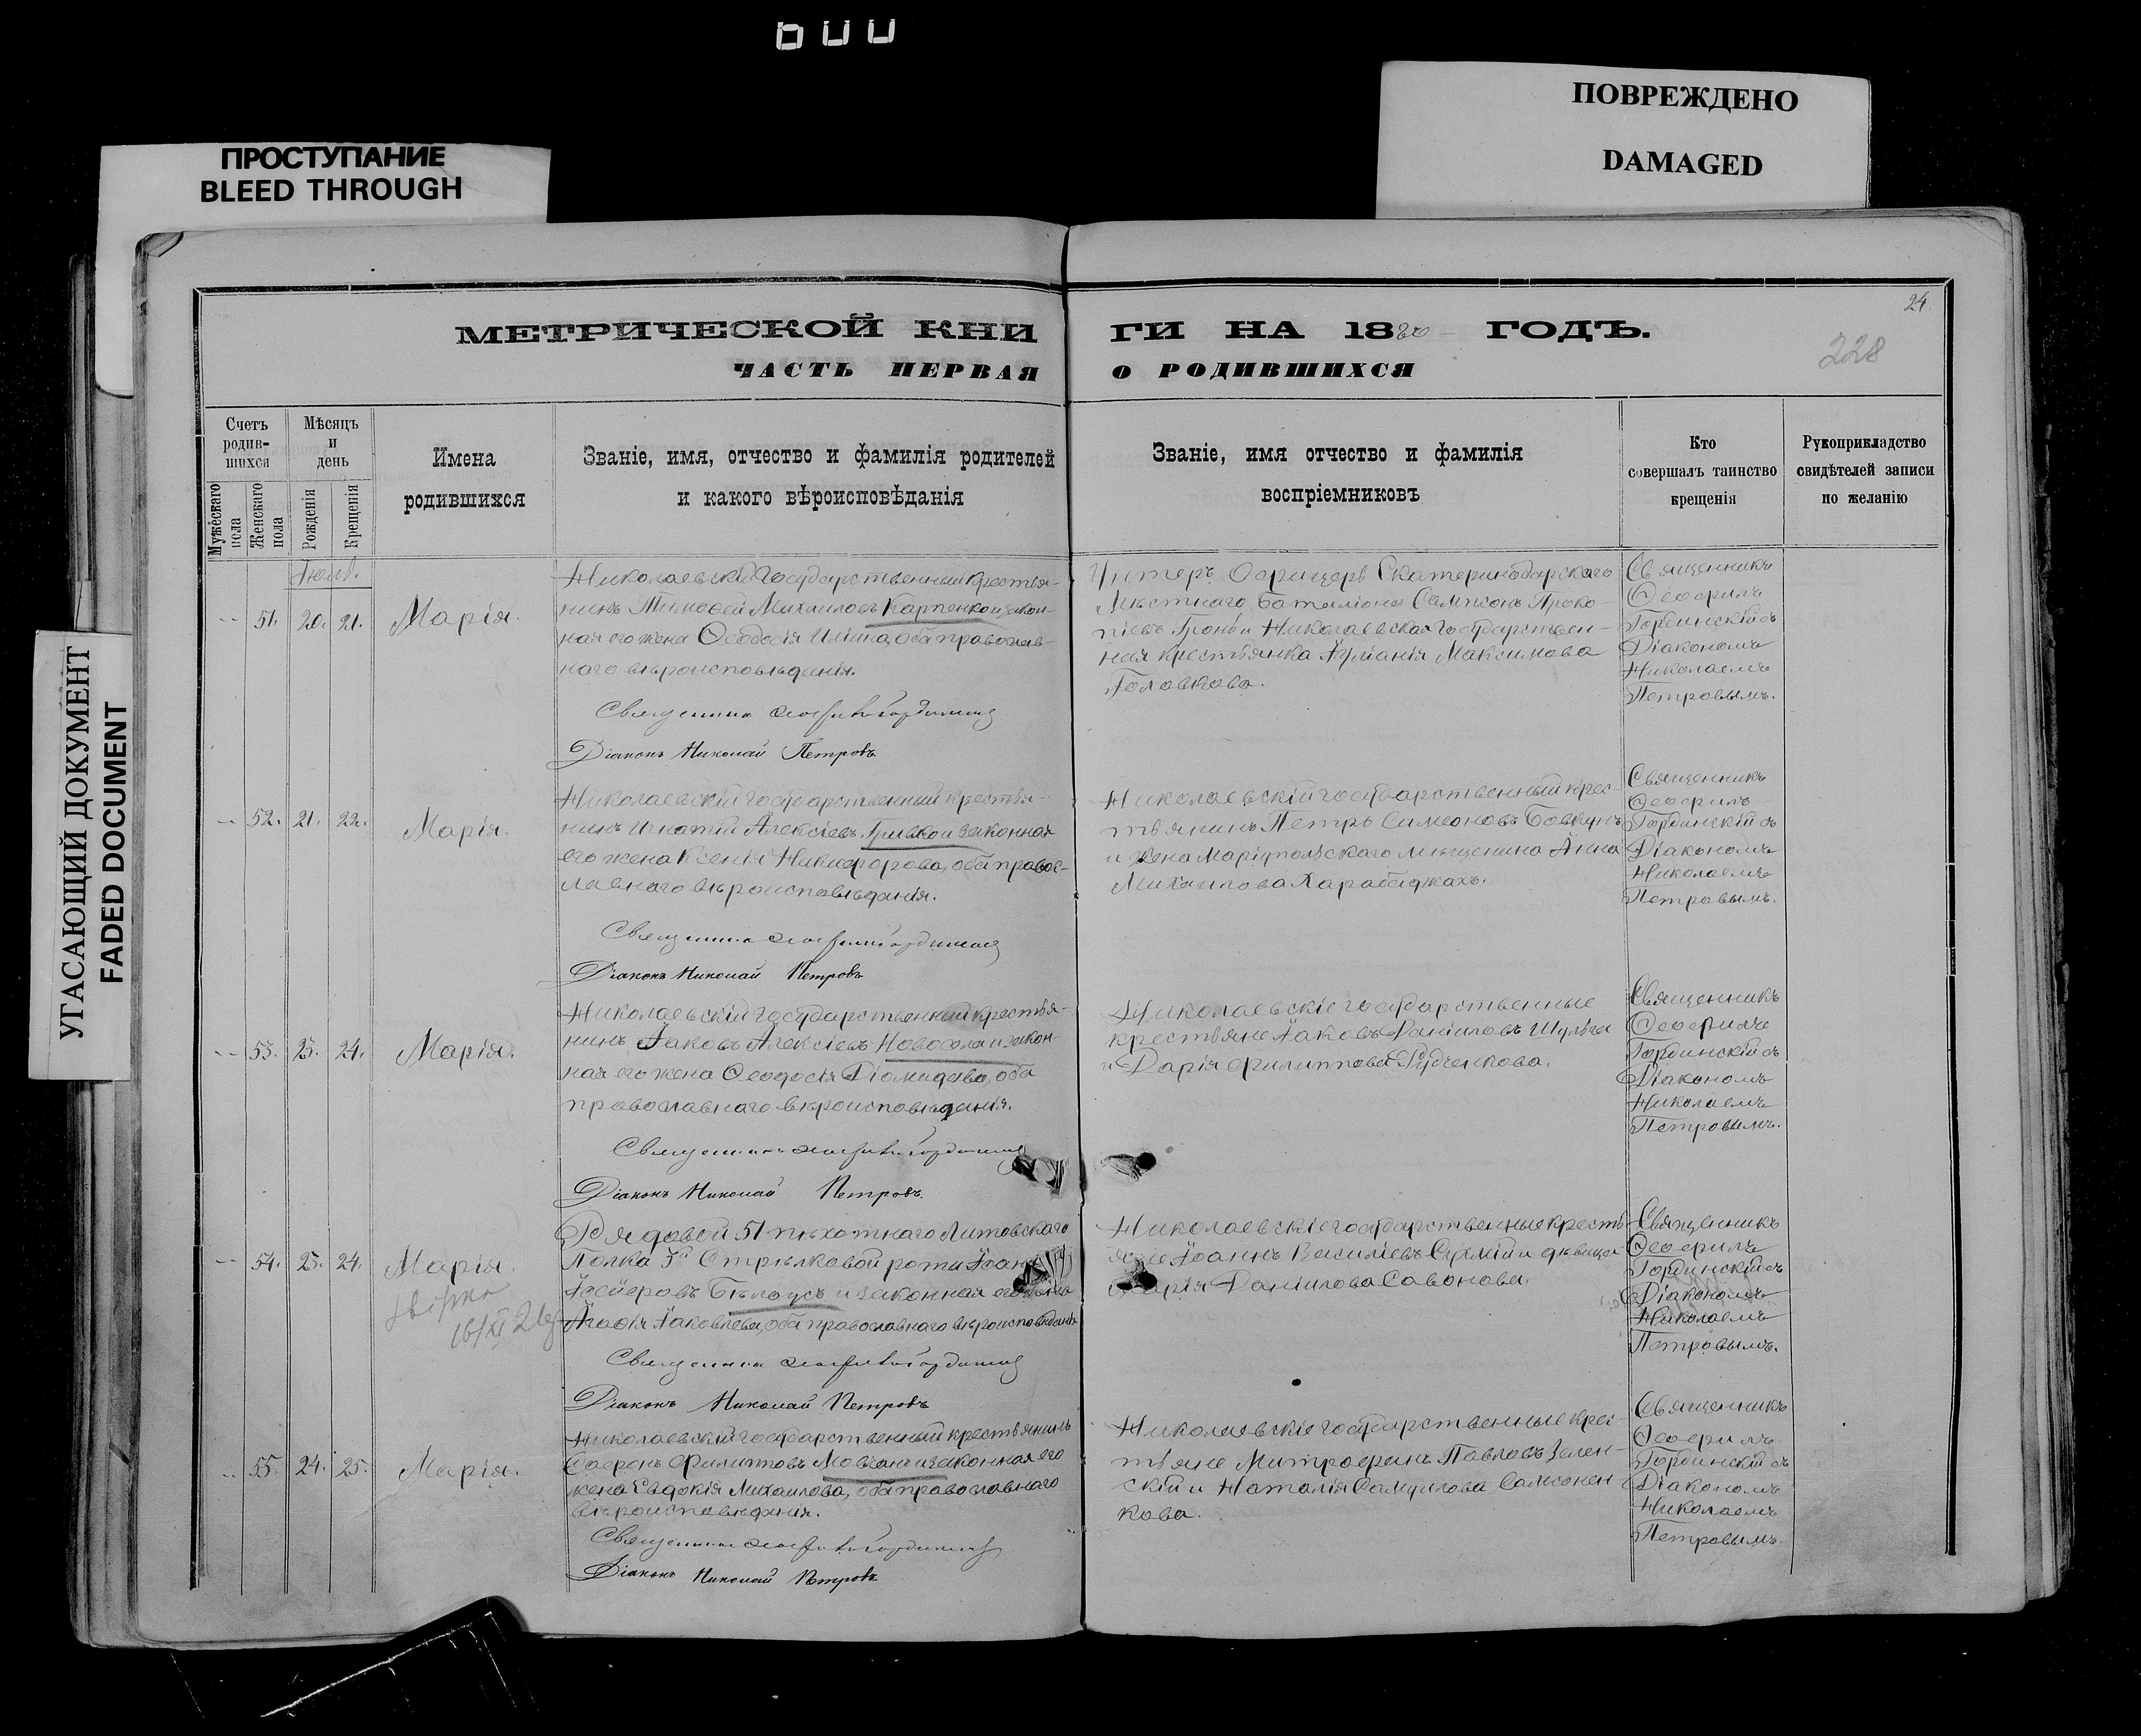 600
ПОВРЕЖДЕНО
DAMAGED
ПРОСТУПАНИЕ
BLEED THROUGH
УГАСАЮЩИЙ ДОКУМЕНТ
FADED DOCUMENT
24.
228
МЕТРИЧЕСКОЙ КНИГИ НА 1880 ГОДЪ.
ЧАСТЬ ПЕРВАЯ О РОДИВШИХСЯ
Счетъ родив-шихся
Мужескаго пола
Женскаго пола
Мѣсяцъ и день
Рожденія
Крещенія
Имена родившихся
Званіе, имя, отчество и фамилія родителей
и какого вѣроисповѣданія
Званіе, имя отчество и фамилія
воспріемниковъ
Кто
совершалъ таинство
крещенія
Рукоприкладство
свидѣтелей записи
по желанію
51. 20. 21. Марія.
Николаевскій государственный крестья-
нинъ Тимоѳей Михаиловъ Карпенко и закон-
ная его жена Ѳеодосія Ильина, оба православ-
наго вѣроисповѣданія.
Діаконъ Николай Петровъ
Унтеръ Офицеръ Екатеринодарскаго
Мѣстнаго Баталіона Сампсонъ Проко-
піевъ и Николаевская государствен-
ная крестьянка Іуліанія Максимова
Головкова.
Священникъ
Ѳеофилъ
Гординскій съ
Діакономъ
Николаемъ
Петровымъ.
52. 21. 22. Марія.
Николаевскій государственный крестья-
нинъ Игнатій Алексіевъ Гривко и законная
его жена Ксенія Никифорова, оба правос-
лавнаго вѣроисповѣданія.
Діаконъ Николай Петровъ
Николаевскій государственный крес-
тьянинъ Петръ Симеоновъ Бовкунъ
и жена Маріупольскаго мѣщанина Анна
Михаилова Карабаджахъ.
Священникъ
Ѳеофилъ
Гординскій съ
Діакономъ
Николаемъ
Петровымъ.
53. 23. 24. Марія.
Николаевскій государственный крестья-
нинъ Іаковъ Алексіевъ Новохела и закон-
ная его жена Ѳеодосія Діомидова, оба
православнаго вѣроисповѣданія.
Діаконъ Николай Петровъ.
Николаевскіе государственные
крестьяне Іаковъ Даніиловъ Шульга
и Дарія Филиппова Рудченкова.
Священникъ
Ѳеофилъ
Гординскій съ
Діакономъ
Николаемъ
Петровымъ.
54. 23. 24. Марія.
Рядовой 51 пѣхотнаго Литовскаго
Полка 3й Стрѣлковой роты Іоаннъ
Бѣлоусъ и законная его жена
Агаѳія Іаковлева, оба православнаго вѣроисповѣданія
Діаконъ Николай Петровъ
Николаевскіе государственные кресть-
яне Іоаннъ Василіевъ и дѣвица
Марія Даніилова Савонова.
Священникъ
Ѳеофилъ
Гординскій съ
Діакономъ
Николаемъ
Петровымъ.
55. 24. 25. Марія.
Николаевскій государственный крестьянинъ
Софронъ Филипповъ Мовчанъ и законная его
жена Евдокія Михаилова, оба православнаго
вѣроисповѣданія.
Діаконъ Николай Петровъ
Николаевскіе государственные крес-
тьяне Митрофанъ Павловъ Зелен-
скій и Наталія Самуилова Самсонен-
кова.
Священникъ
Ѳеофилъ
Гординскій съ
Діакономъ
Николаемъ
Петровымъ.